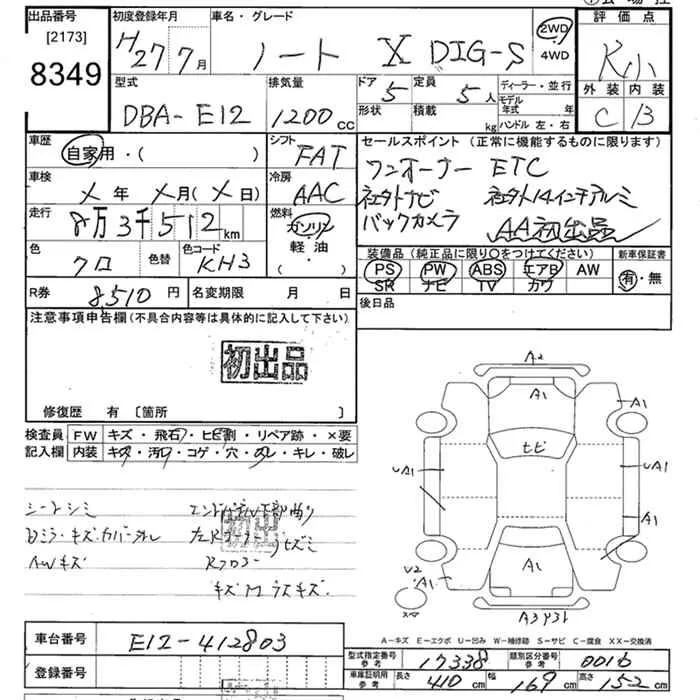 出品番号
[2173]
8349
初度登録年月
H27 7月
車名・グレード
ノート X DIG-S
2WD
4WD
評価点
R小
外装 内装
C B
型式
DBA-E12
排気量
1200 CC
ドア 5
形状
定員 5人
積載 kg
ディーラー・並行
モデル年式 年
ハンドル 左・右
車歴
自家用・( )
シフト
FAT
車検
X年 X月(X日)
冷房
AAC
走行
8万3千512km
燃料
ガソリン
軽油
( ・ )
色
クロ
色替
色コード
KH3
R券 8510円
名変期限 月 日
セールスポイント(正常に機能するものに限ります)
ワンオーナー ETC
社外ナビ 社外14インチアルミ
バックカメラ AA初出品
装備品(純正品に限り○をつけてください)
PS PW ABS エアB AW
SR ナビ TV カワ
新車保証書
有・無
後日品
注意事項申告欄(不具合内容等は具体的に記入して下さい)
初出品
修復歴 有〔箇所 〕
検査員 FW キズ・飛石・ヒビ割・リペア跡・×要
記入欄 内装 キズ・汚れ・コゲ・穴・スレ・キレ・破レ
シートシミ
Dミラーキズカバー
AWキズ
初出品
A2
A1
A1
ヒビ
UA1
UA1
A1
A1
U2
A1
A3Y31
A-キズ E-エクボ U-凹み W-補修跡 S-サビ C-腐食 XX-交換済
車台番号 E12-412803
登録番号
型式指定番号 参考 17338
類別区分番号 参考 0016
車庫証明用 参考 長さ 410cm 幅 169cm 高さ 152cm